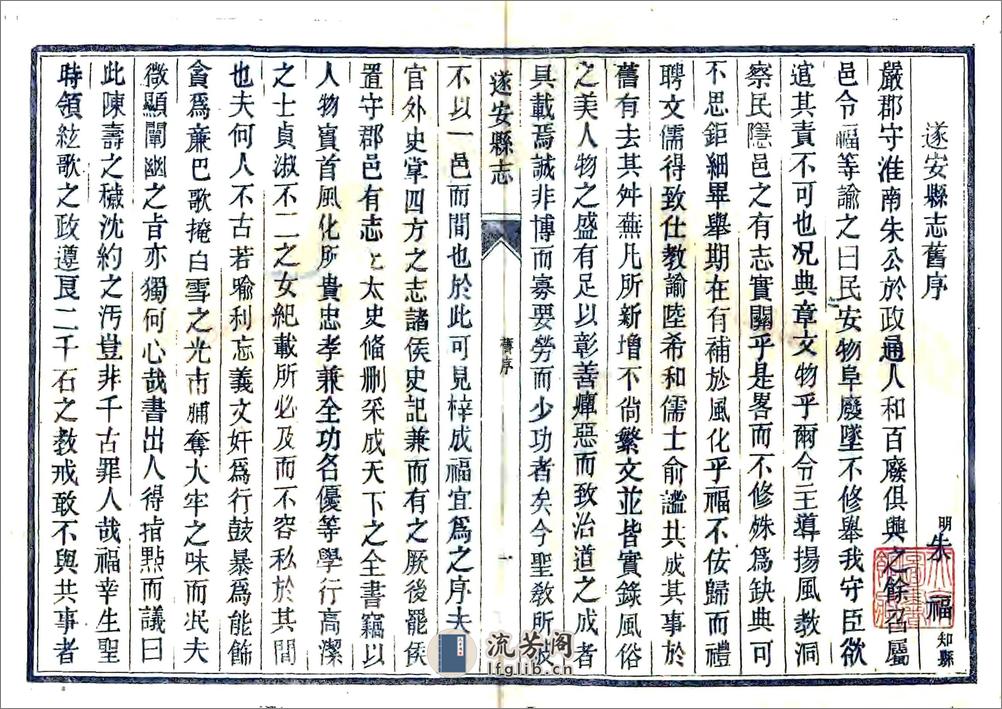 遂安縣志舊序
明朱福知縣
嚴郡守淮南朱公於政通人和百廢俱興之餘召屬
邑令福等諭之曰民安物阜廢墜不修舉我守臣欲
逭其責不可也况典章文物乎爾令主導揚風教洞
察民隱邑之有志實關乎是畧而不修殊爲缺典可
不思鉅細畢舉期在有補於風化乎福不佞歸而禮
聘文儒得致仕教諭陸希和儒士俞諡共成其事於
舊有去其舛蕪凡所新增不尙繁文並皆實錄風俗
之美人物之盛有足以彰善癉惡而致治道之成者
具載焉誠非博而寡要勞而少功者矣今聖敎所被
遂安縣志
舊序
一
不以一邑而間也於此可見梓成福宜爲之序夫
官外史掌四方之志諸侯史記兼而有之厥後罷侯
置守郡邑有志上太史俻刪采成天下之全書竊以
人物實首風化所貴忠孝兼全功名優等學行高潔
之士貞淑不二之女紀載所必及而不容私於其間
也夫何人不古若喻利忘義文奸爲行鼓暴爲能飾
貪爲亷巴歌掩白雪之光市脯奪大牢之味而冺夫
微顯闡幽之旨亦獨何心哉書出人得指點而議曰
此陳壽之穢沈約之汚豈非千古罪人哉福幸生聖
時領絃歌之政遵良二千石之教戒敢不與共事者
流芳阁
lfglib.cn